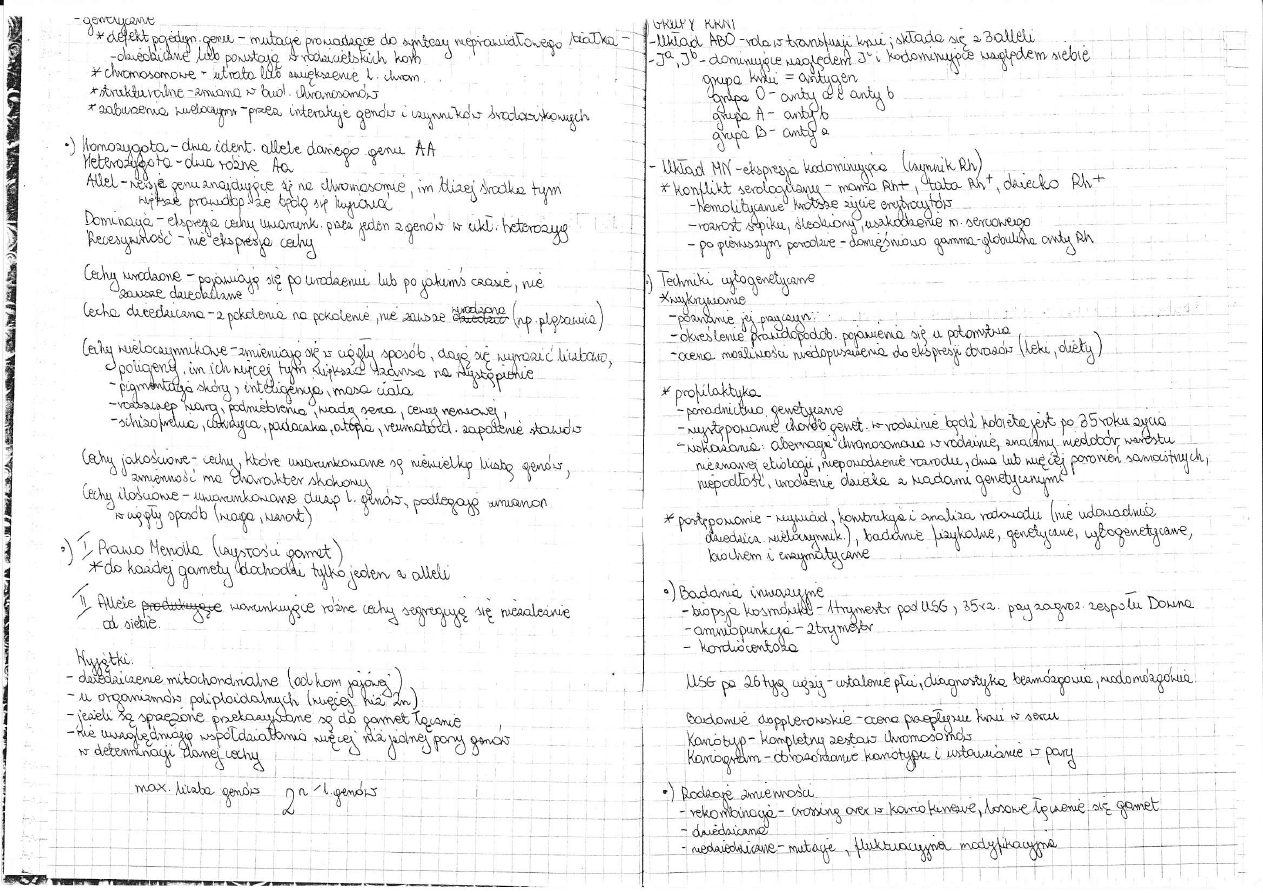 - genetyczne
* defekt pojedyn. genu - mutacje prowadzące do syntezy nieprawidłowego białka -
- dziedziczne lub powstają w rodzicielskich kom
* chromosomowe - utrata lub zwiększenie l. chrom.
* strukturalne - zmiana w bud. chromosomów
* zaburzenia wieloczynn - przez interakcje genów i czynników środowiskowych
•) Homozygota - dwa ident. allele danego genu AA
Heterozygota - dwa różne Aa
Allel - wersje genu znajdujące się na chromosomie, im bliżej środka tym
większe prawdop. że będą się
Dominacja - ekspresja cechy uwarunk. przez jeden z genów w ukł. heterozyg
Recesywność - nie ekspresja cechy
Cechy wrodzone - pojawiają się po urodzeniu lub po jakimś czasie, nie
zawsze dziedziczne
Cecha dziedziczna - z pokolenia na pokolenie, nie zawsze wrodzona (np. pląsawica)
Cechy wieloczynnikowe - zmieniają się w ciągły sposób, dają się wyrazić liczbowo,
poligeny, im ich więcej tym większa szansa na wystąpienie
- pigmentacja skóry, inteligencja, masa ciała
- rozszczep warg, podniebienia, wady serca, cewy nerwowej,
- schizofrenia, cukrzyca, padaczka, atopia, reumatoid. zapalenie stawów
Cechy jakościowe - cechy, które uwarunkowane są niewielką liczbą genów,
zmienność ma charakter skokowy
Cechy ilościowe - uwarunkowane dużą l. genów, podlegają zmianom
w ciągły sposób (waga, wzrost)
•) I Prawo Mendla (czystości gamet)
* do każdej gamety dochodzi tylko jeden z alleli
II Allele produkujące warunkujące różne cechy segregują się niezależnie
od siebie.
Wyjątki:
- dziedziczenie mitochondrialne (od kom jajowej)
- u organizmów poliploidalnych (więcej niż 2n)
- jeżeli są sprzężone przekazywane są do gamet łącznie
- nie uwzględniają współdziałania więcej niż jednej pary genów
w determinacji danej cechy
max. liczba genów 2ⁿ / l. genów
GRUPY KRWI
- Układ ABO - rola w transfuzji krwi, składa się z 3 alleli
- Jᵃ, Jᵇ - dominujące względem Jᶜ i kodominujące względem siebie
grupa krwi = antygen
grupa O - anty a i anty b
grupa A - anty b
grupa B - anty a
- Układ MN - ekspresja kodominująca (czynnik Rh)
* konflikt serologiczny - mama Rh+, tata Rh+, dziecko Rh+
- hemolitycznie krótsze życie erytrocytów
- rozrost szpiku, śledziony, uszkodzenie m. sercowego
- po pierwszym porodzie - domięśniowo gamma-globulina anty Rh
•) Techniki cytogenetyczne
* wykrywanie
- poznanie jej przyczyn:
- określenie prawdopodob. pojawienia się u potomstwa
- ocena możliwości niedopuszczenia do ekspresji obrazów (leki, diety)
* profilaktyka
- poradnictwo genetyczne
- występowanie chorób genet. w rodzinie bądź kobieta jest po 35 roku życia
- wskazania: aberracje chromosomowe w rodzinie, znaczny niedobór wzrostu
nieznanej etiologii, niepowodzenie rozrodu, dwa lub więcej poronień samoistnych,
niepłodność, urodzenie dziecka z wadami genetycznymi
* postępowanie - wywiad, konstrukcja i analiza rodowodu (nie udowadnia
dziedzicz. wieloczynnik.), badanie fizykalne, genetyczne, cytogenetyczne,
biochem i enzymatyczne
•) Badania inwazyjne
- biopsja kosmówki - 1 trymestr pod USG, 35 r.ż. przy zagroż. zespołu Downa
- amniopunkcja - 2 trymestr
- kordocenteza
USG po 26 tyg ciąży - ustalenie płci, diagnostyka bezmózgowia, wodomózgowia.
Badanie dopplerowskie - ocena przepływu krwi w sercu
Kariotyp - kompletny zestaw chromosomów
Kariogram - obrazowanie kariotypu i ustawianie w pary
•) Rodzaje zmienności
- rekombinacja - crossing over w kariokinezie, losowe łączenie się gamet
- dziedziczna
- niedziedziczne - mutacje, fluktuacyjna modyfikacyjna